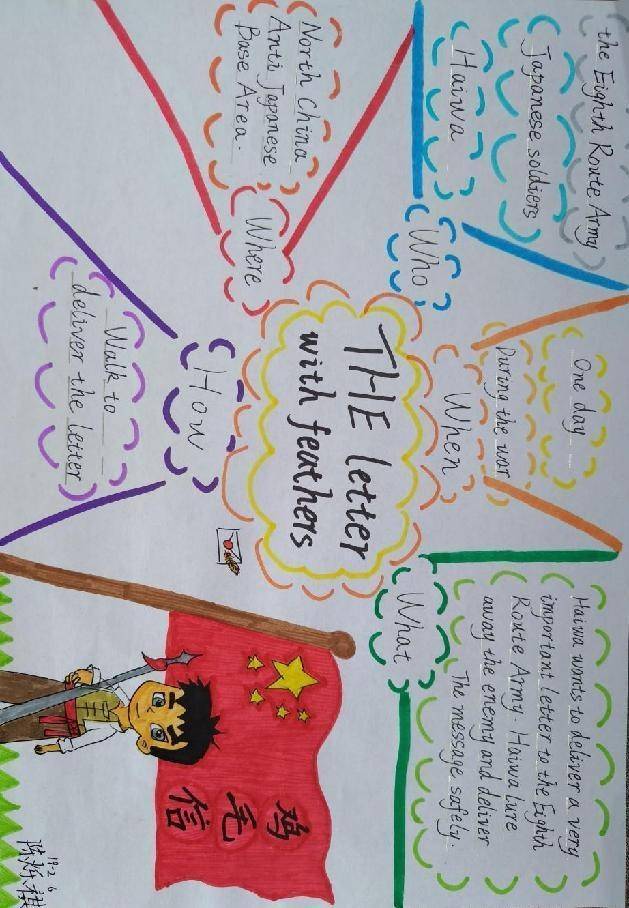 the Eighth Route Army
Japanese soldiers
Haiwa
Who
One day
During the war
When
Haiwa wants to deliver a very
important letter to the Eighth
Route Army. Haiwa lure
away the enemy and deliver
The message safely.
What
THE letter
with feathers
North China
Anti Japanese
Base Area.
Where
How
Walk to
deliver the letter
鸡
毛
信
19-2 6
陈